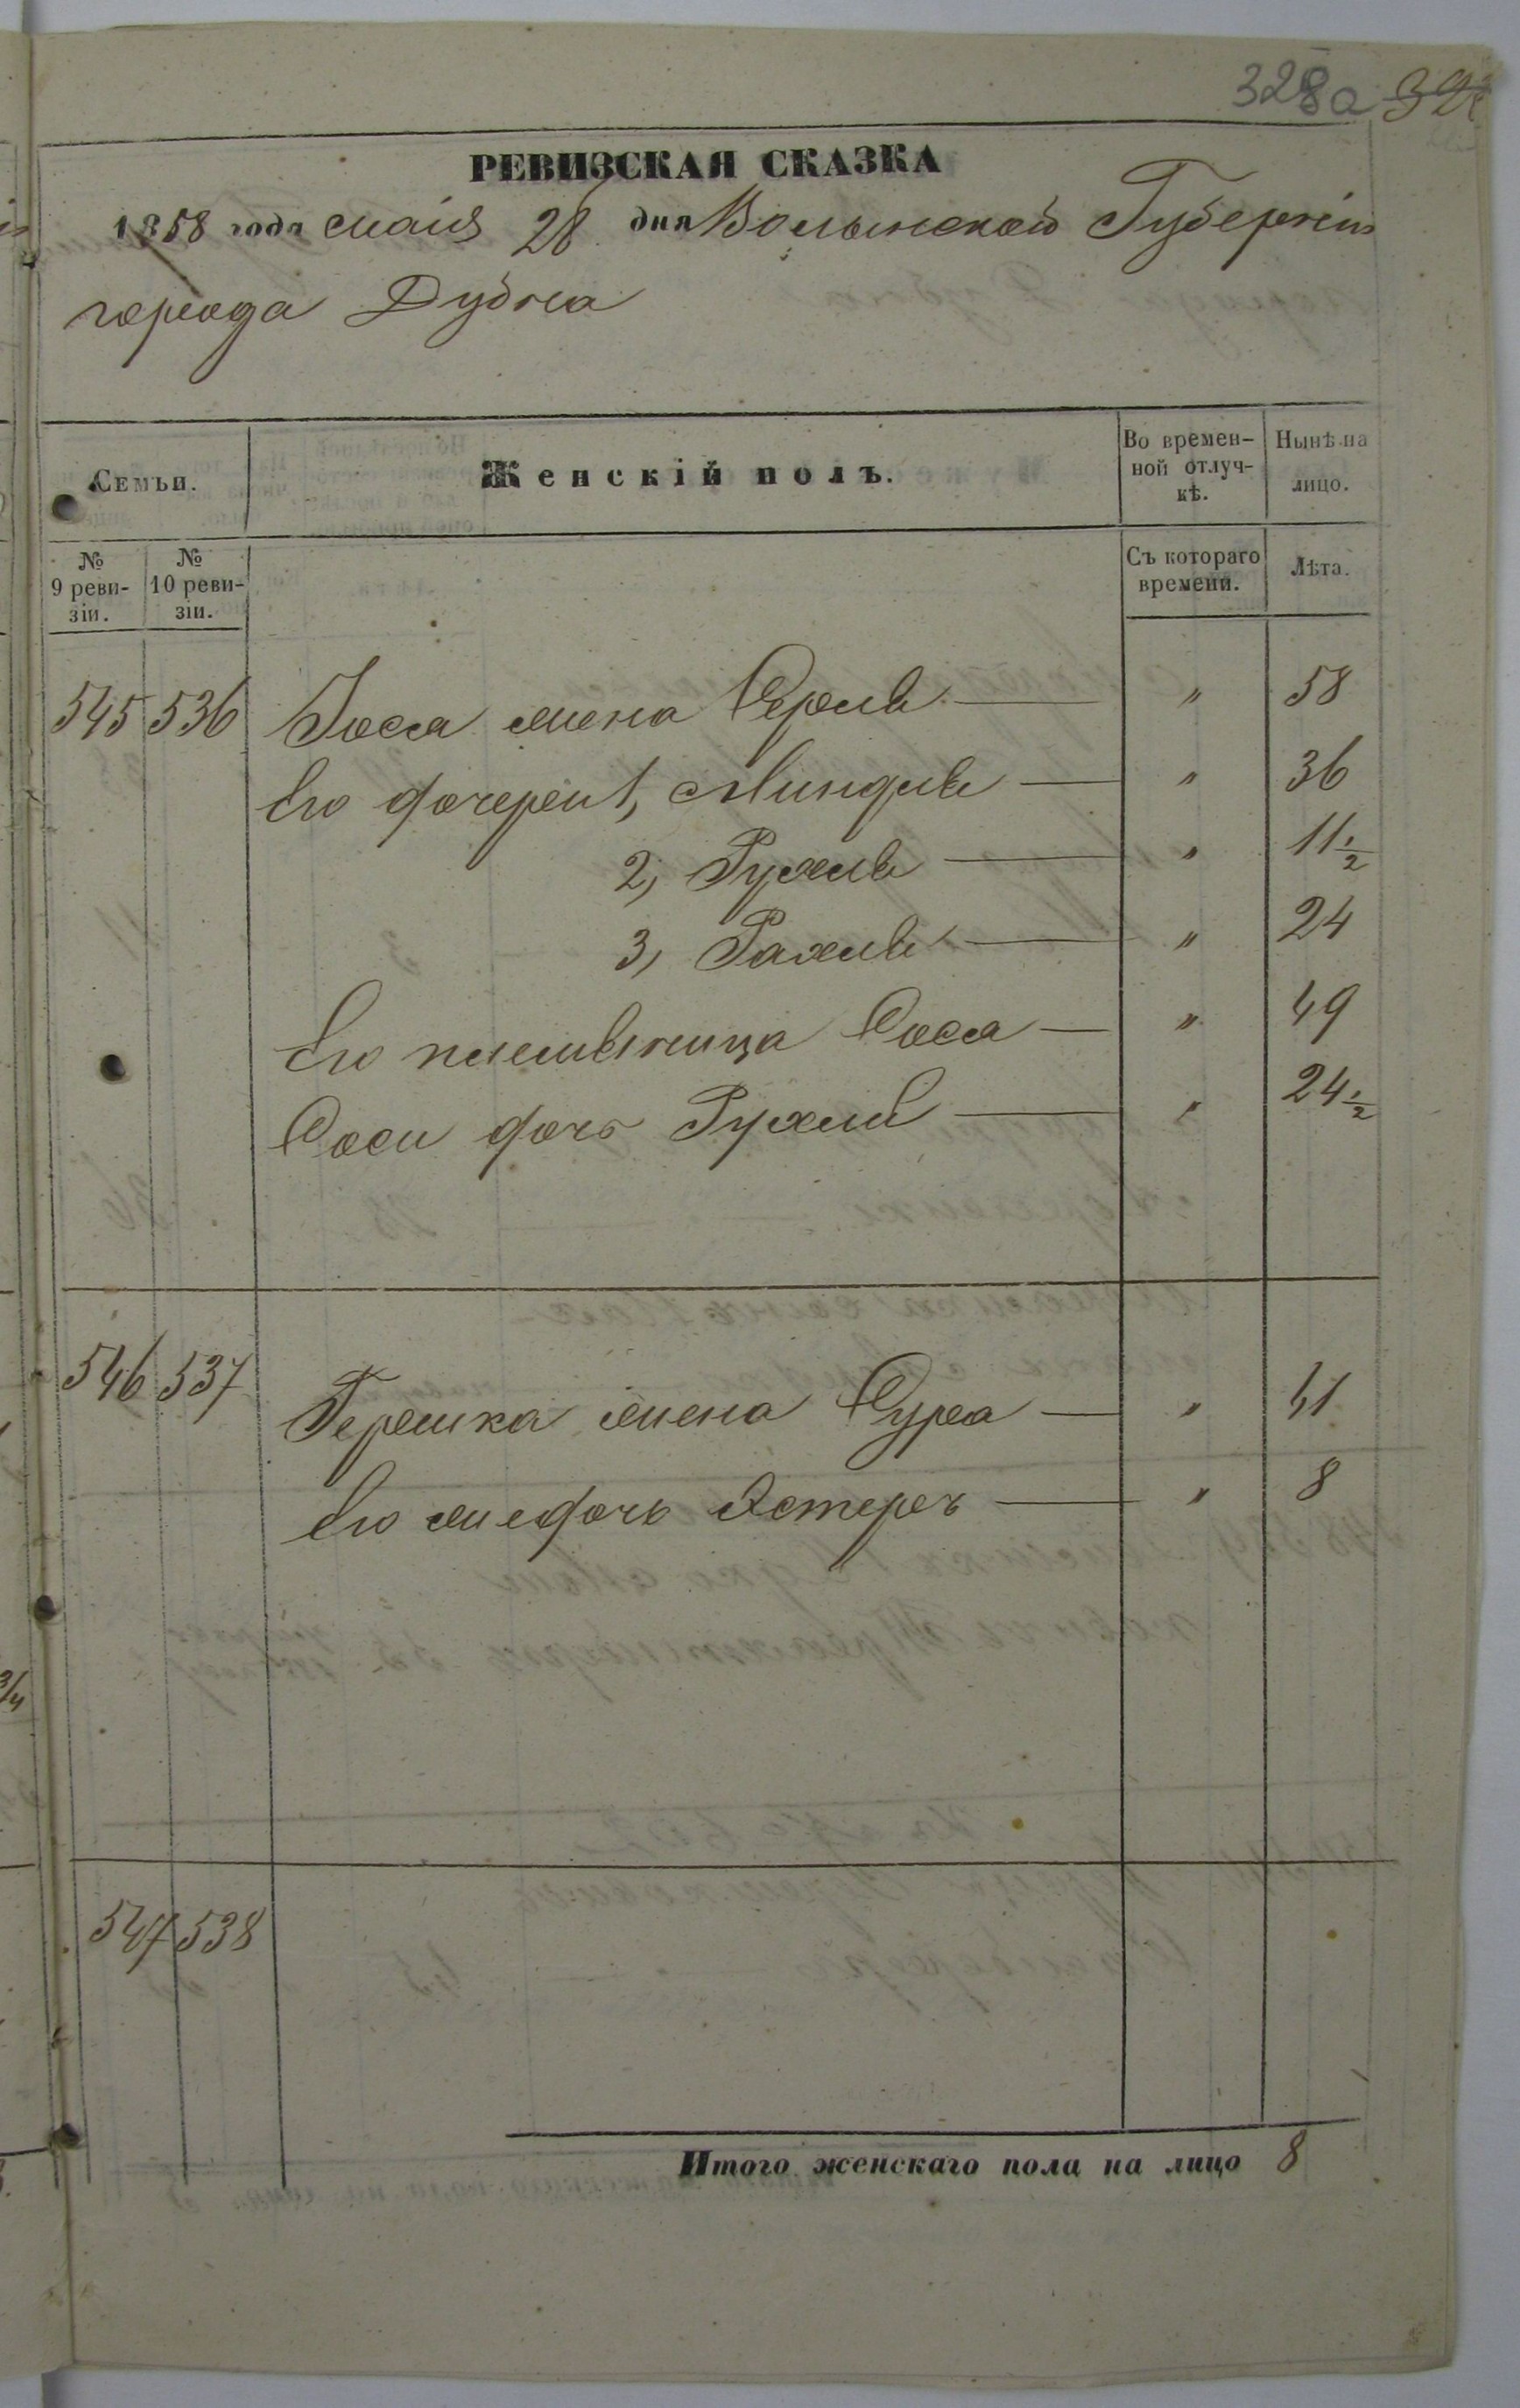 328а
РЕВИЗСКАЯ СКАЗКА
1858 года маія 28 дня Волынской Губерніи
города Дубна
Семьи.
Женскій полъ.
Во времен-
ной отлуч-
кѣ.
Нынѣ на
лицо.
№
9 реви-
зіи.
№
10 реви-
зіи.
Съ котораго
времени.
Лѣта.
545 536 Іося жена Серля — " 58
Его дочерей 1, Миндля — " 36
2, Рухля — " 11 1/2
3, Рахля — " 24
Его племяница Сося — " 49
Соси дочь Рухля — " 24 1/2
546 537 Гершка жена Сура — " 41
Его же дочь Эстеръ — " 8
547 538
Итого женскаго пола на лицо 8